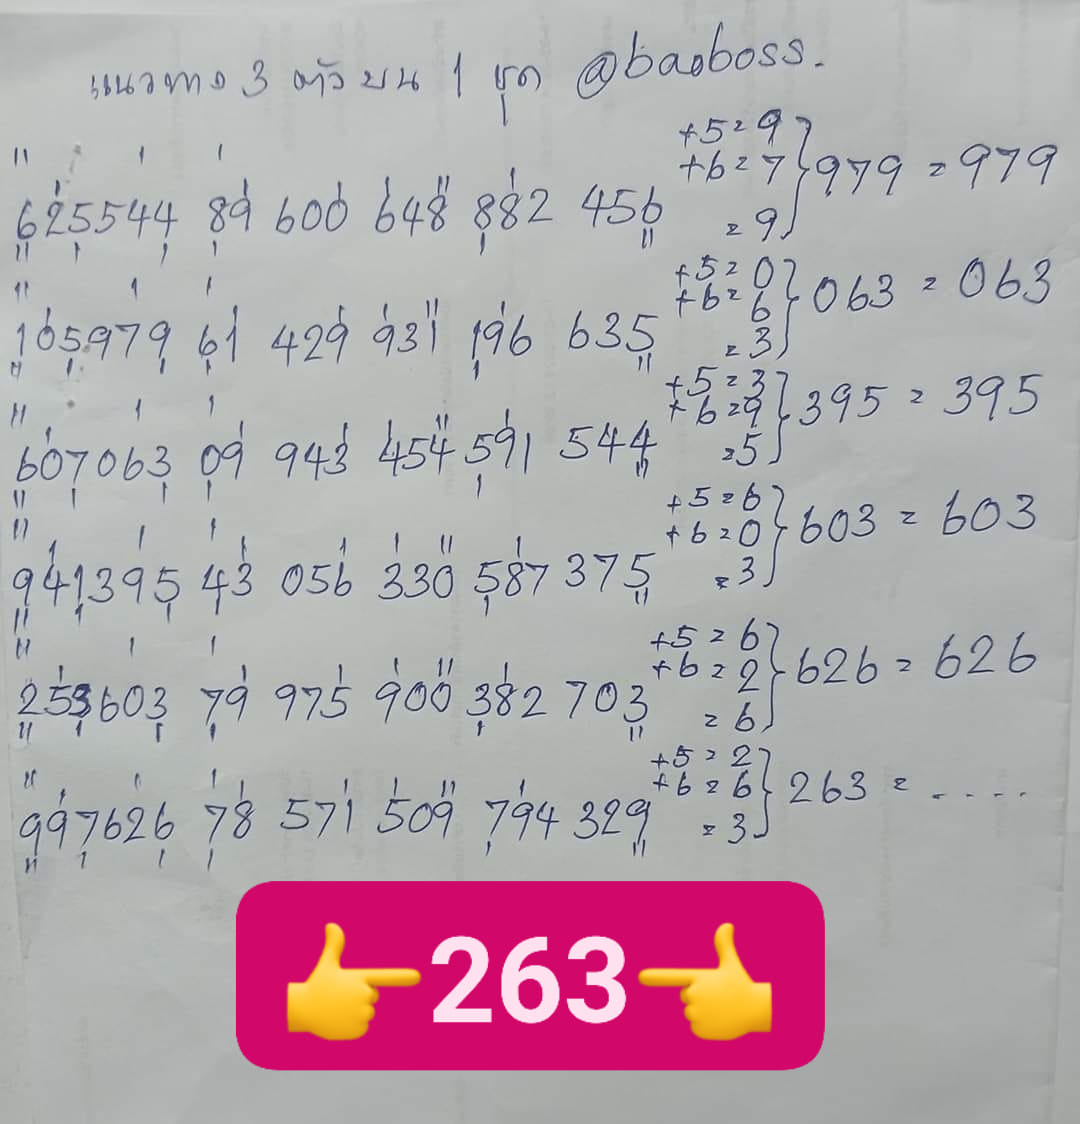 แนวทาง 3 ตัวบน 1 ชุด @baoboss.
625544 89 600 648 882 456 +5=9 +6=7 =9 } 979 = 979
105979 61 429 931 196 635 +5=0 +6=6 =3 } 063 = 063
607063 09 943 454 591 544 +5=3 +6=9 =5 } 395 = 395
941395 43 056 330 587 375 +5=6 +6=0 =3 } 603 = 603
253603 79 975 900 382 703 +5=6 +6=2 =6 } 626 = 626
997626 78 571 509 794 329 +5=2 +6=6 =3 } 263 = ....
👉263👈